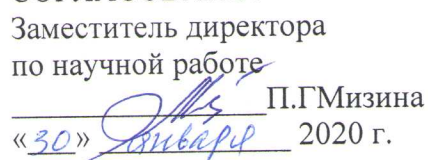 Заместитель директора
по научной работе
П.ГМизина
«30» января 2020 г.